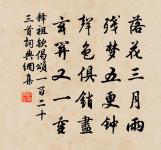 落花三月雨
残梦五更鍾
聲色俱銷盡
玄關又一重
釋祖欽偈頌一百二十
三首詞典網集